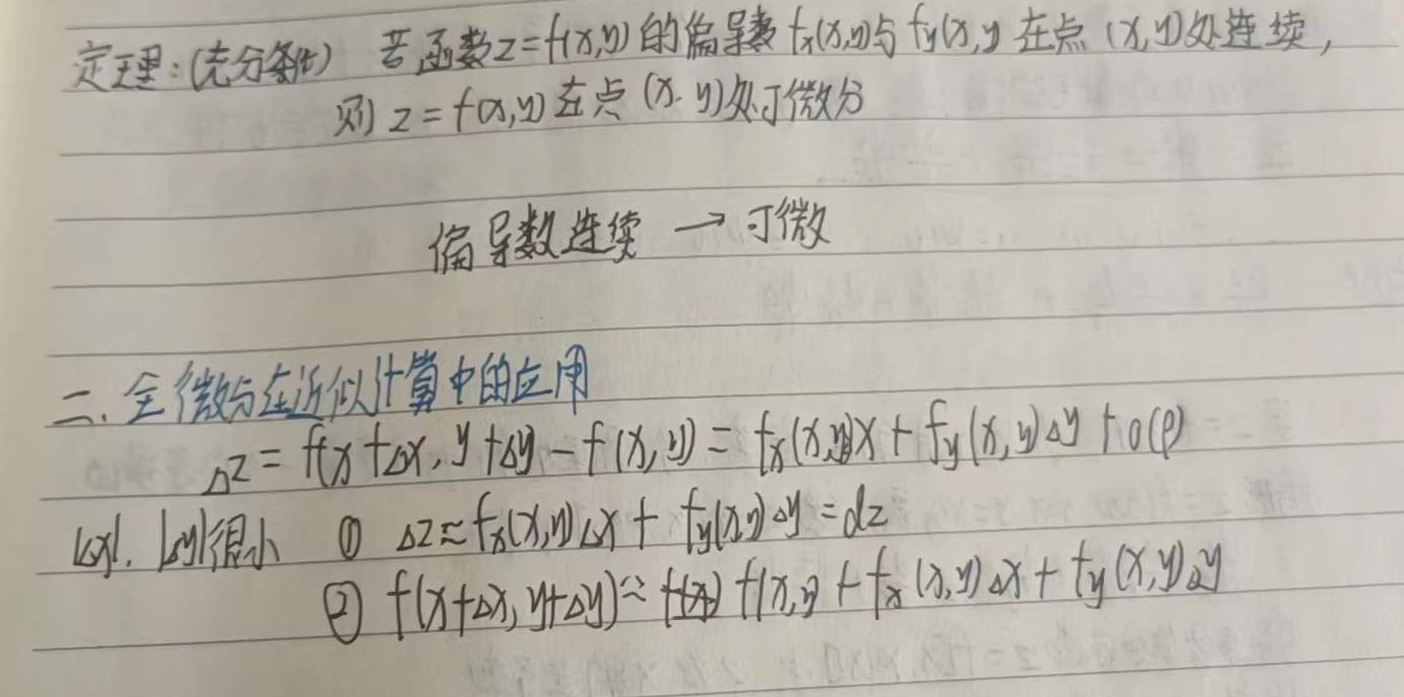 定理:(充分条件) 若函数z=f(x,y)的偏导数fx(x,y)与fy(x,y 在点(x,y)处连续,
则 z=f(x,y)在点(x.y)处可微分
偏导数连续 → 可微
二.全微分在近似计算中的应用
Δz=f(x+Δx,y+Δy-f(x,y)=fx(x,y)x+fy(x,y)Δy+o(ρ)
|Δx|.|Δy|很小 ① Δz≈fx(x,y)Δx+fy(x,y)Δy=dz
② f(x+Δx,y+Δy)≈f(x,y+fx(x,y)Δx+fy(x,y)Δy